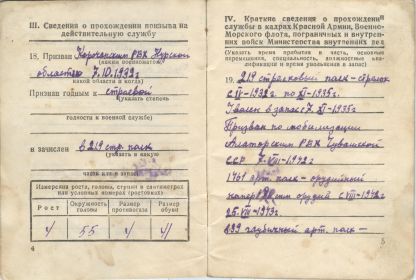 III. Сведения о прохождении призыва на
действительную службу
18. Призван Корочанским РВК Курской
(каким военкоматом,
областью 7.10.1932 г.
какой области и когда)
Призван годным к строевой
(указать степень
годности к военной службе)
и зачислен в 219 стр. полк
(указать в какую
часть или в запас)
Измерения роста, головы, ступни в сантиметрах
или условных номерах (ростовках)
Рост Окружность головы Размер противогаза Размер обуви
4 55 4 41
4
IV. Краткие сведения о прохождении
службы в кадрах Красной Армии, Военно-
Морского флота, пограничных и внутрен-
них войск Министерства внутренних дел
(Указать время прибытия в часть, основные
перемещения, специальность, должностные ква-
лификации и время увольнения в запас)
19. 219 стрелковый полк - стрелок
с 1932 г. по XI-1935 г.
Уволен в запас XI-1935 г.
Призван по мобилизации
Алатырским РВК Чувашской
ССР 7.VIII-1942 г.
арт. полк - орудийный
номер орудий с VIII-1942 г.
25.VII-1943 г.
139 гаубичный арт. полк -
5